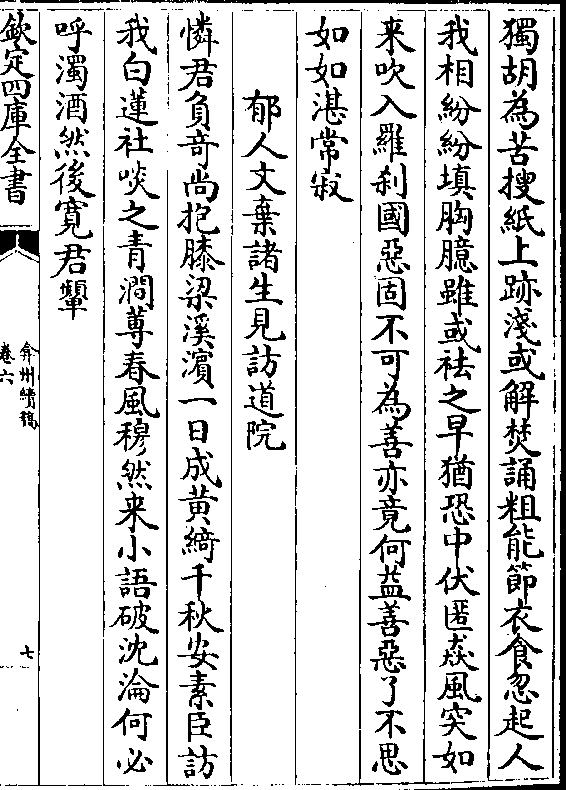 獨胡為苦搜紙上跡淺或解焚誦粗能節衣食忽起人
我相紛紛填胸臆雖或祛之早猶恐中伏匿猋風突如
来吹入羅刹國惡固不可為善亦竟何益善惡了不思
如如湛常寂
郁人文棄諸生見訪道院
憐君負竒尚抱膝梁溪濱一日成黄綺千秋安素臣訪
我白蓮社啖之青澗蓴春風穆然来小語破沈淪何必
呼濁酒然後寬君顰
欽定四庫全書
弇州續稿
卷六
七